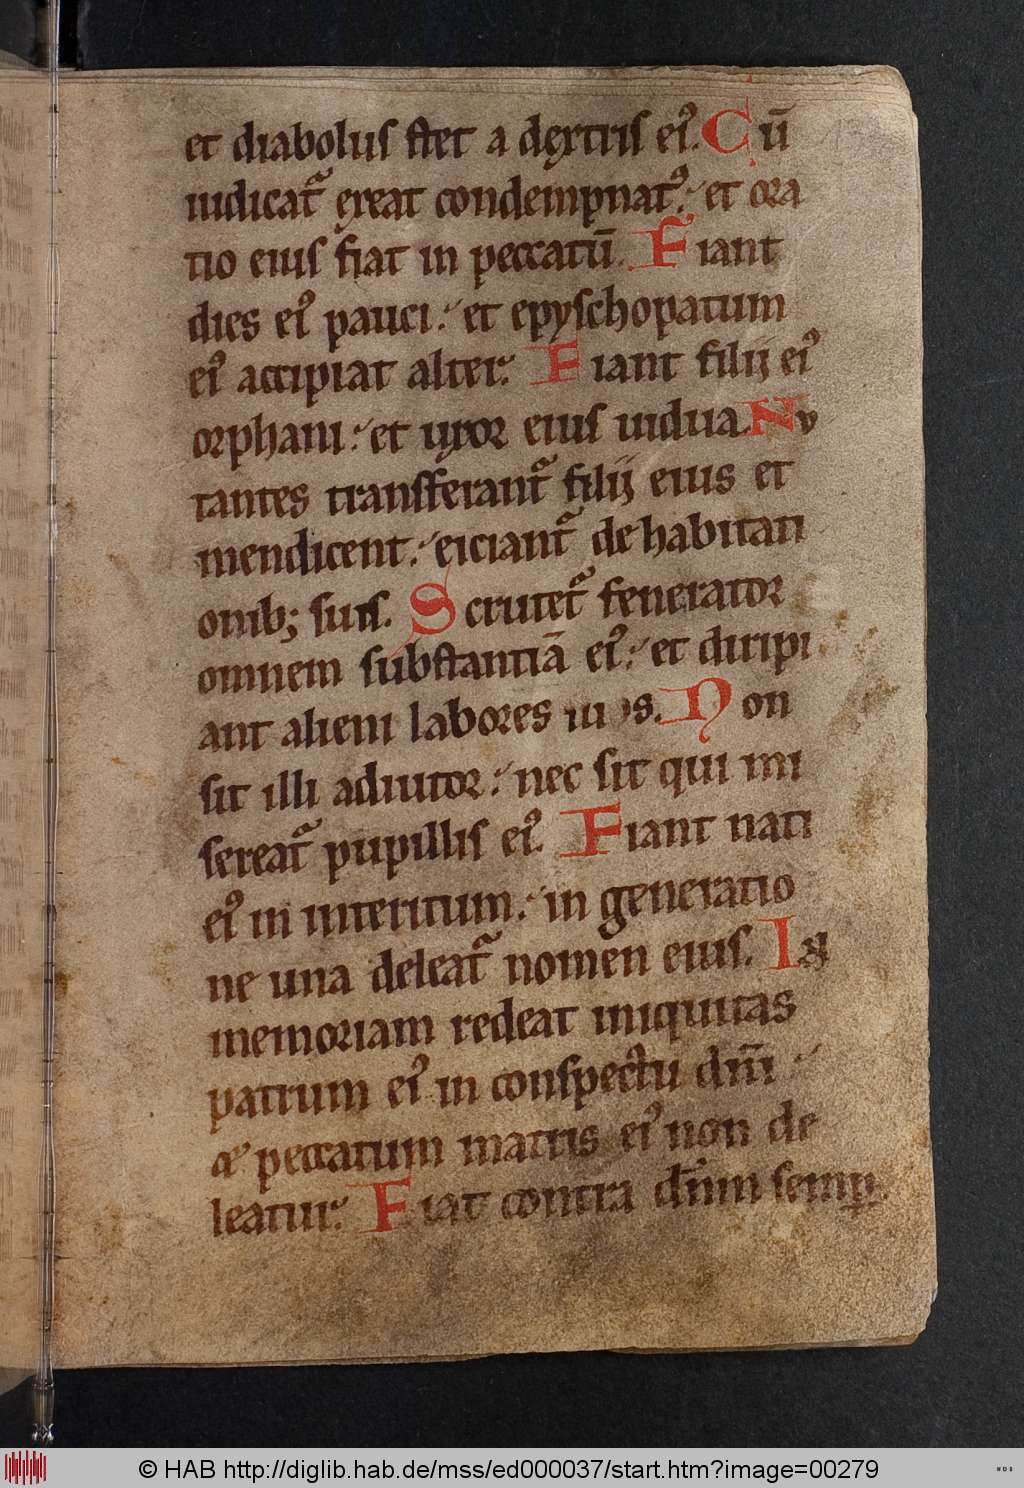 et diabolus stet a dextris ei⁹. Cū
iudicat᷑ exeat condempnat⁹. et ora
tio eius fiat in peccatū. Fiant
dies ei⁹ pauci. et epyschopatum
ei⁹ accipiat alter. Fiant filij ei⁹
orphani. et uxor eius uidua. Nu
tantes transferant᷑ filij eius et
mendicent. eiciant᷑ de habitati
onib; suis. Scrutet᷑ fenerator
omnem substantiā ei⁹. et diripi
ant alieni labores s.Non
sit illi adiutor. nec sit qui mi
sereat᷑ pupillis ei⁹. Fiant nati
ei⁹ in interitum. in generatio
ne una deleat᷑ nomen eius. In
memoriam redeat iniquitas
patrum ei⁹ in conspectu dn̄i
& peccatum matris ei⁹ non de
leatur. Fiat contra dn̄m semp̲.
© HAB http://diglib.hab.de/mss/ed000037/start.htm?image=00279